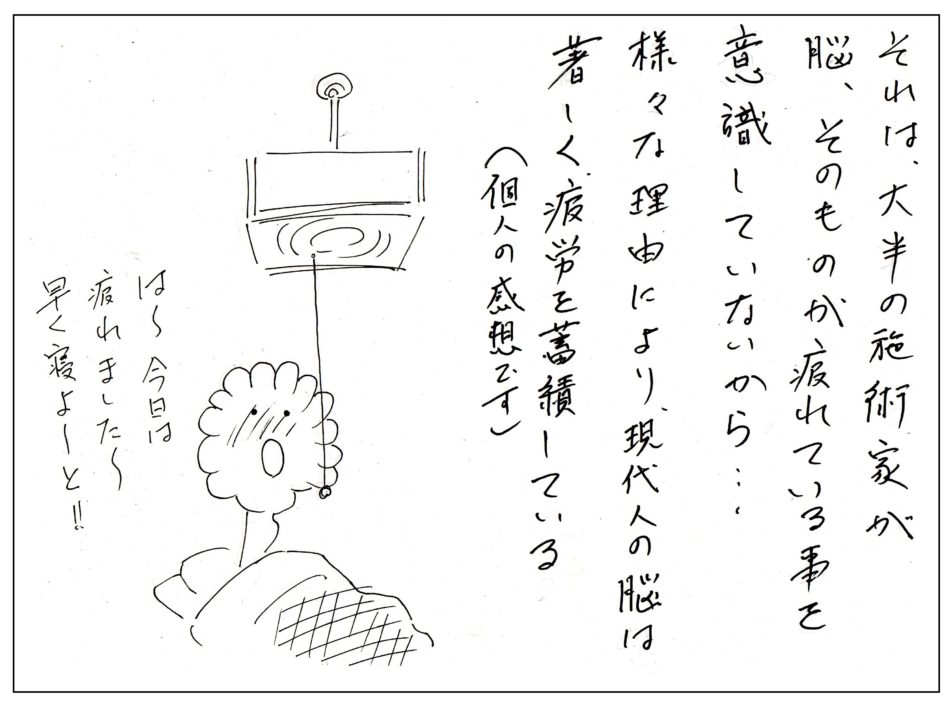 それは、大半の施術家が
脳、そのものが疲れている事を
意識していないから...
様々な理由により、現代人の脳は
著しく疲労を蓄積している
(個人の感想です)
は〜今日は
疲れました〜
早く寝よーと!!